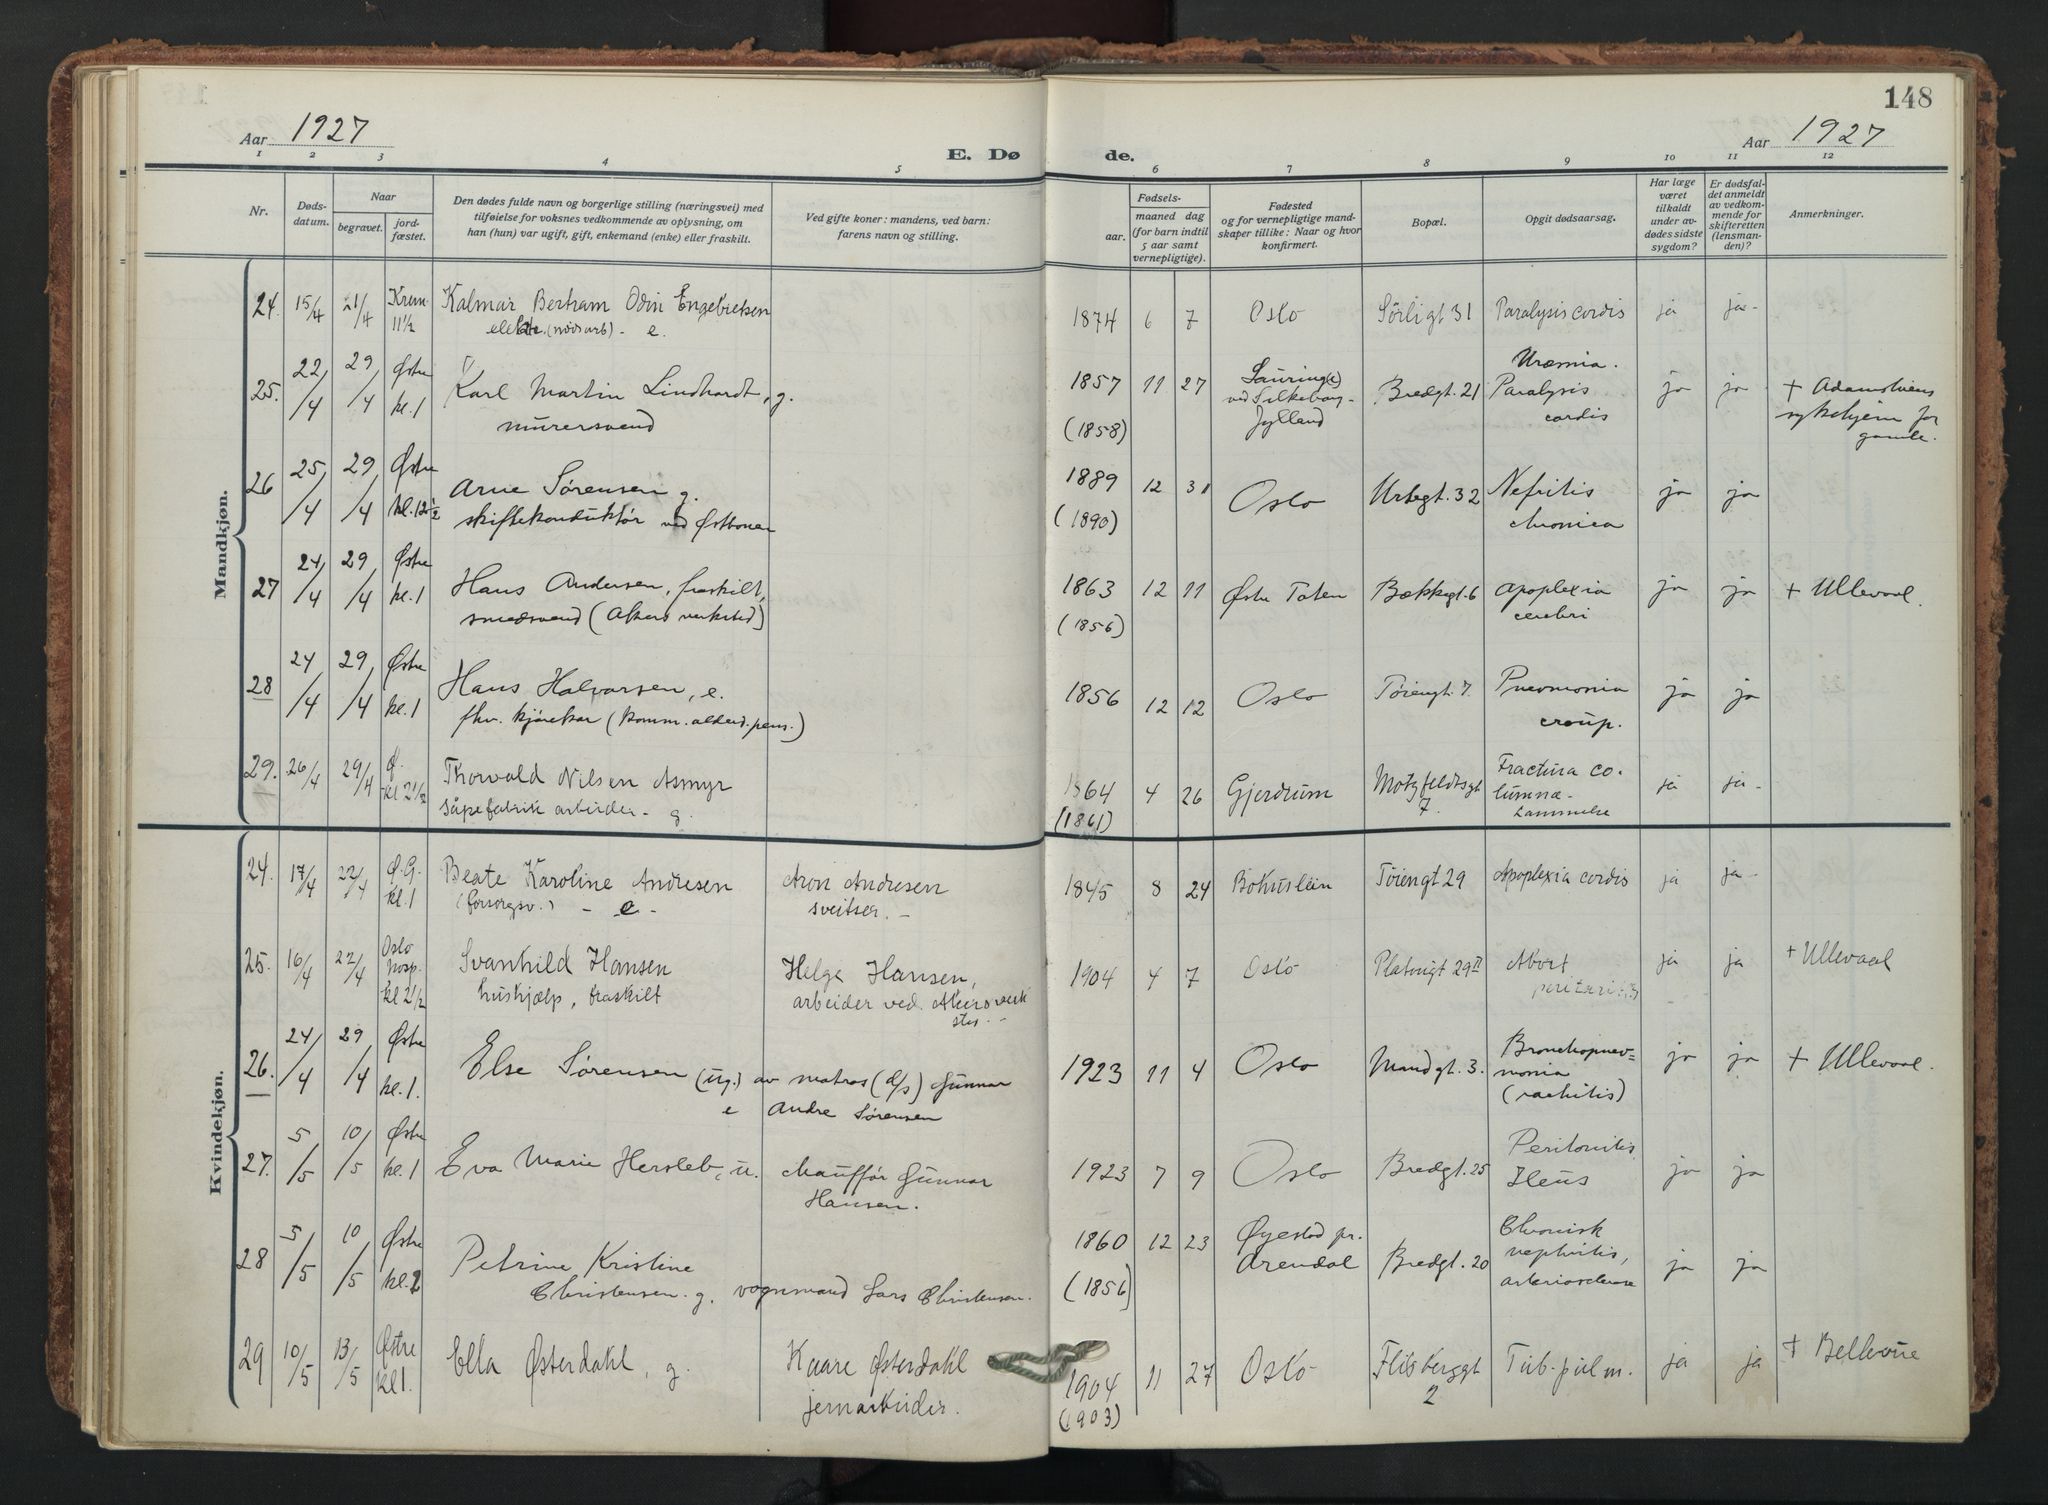 148
Aar 1927
E. Dø de.
Aar 1927
1 2 3 4 5 6 7 8 9 10 11 12
Nr.
Døds-
datum.
Naar
begravet.
jord-
fæstet.
Den dødes fulde navn og borgerlige stilling (næringsvei) med
tilføielse for voksnes vedkommende av oplysning, om
han (hun) var ugift, gift, enkemand (enke) eller fraskilt.
Ved gifte koner: mandens, ved barn:
farens navn og stilling.
Fødsels-
aar.
maaned dag
(for barn indtil
5 aar samt
vernepligtige).
Fødested
og for vernepligtige mand-
skaper tillike: Naar og hvor
konfirmert.
Bopæl.
Opgit dødsaarsag.
Har læge
været
tilkaldt
under av-
dødes sidste
sygdom?
Er dødsfal-
det anmeldt
av vedkom-
mende for
skifteretten
(lensman-
den)?
Anmerkninger.
Mandkjøn.
24. 15/4 21/4 Krem. 11½ Kalmar Bertram Odin Engebretsen 1874 6 7 Oslo Sørligt 31 Paralysis cordis ja ja
(nødsarb) - e.
25. 22/4 29/4 Østre kl. 1 Karl Martin Lindhardt, g. 1857 11 27 ved Silkeborg Bredgt. 21 Uræmia. Paralysis ja ja + Adamstuens
murersvend (1858) Jylland cordis sykehjem for
gamle.
26 25/4 29/4 Østre kl. 12½ Arne Sørensen g. 1889 12 31 Oslo Urtegt. 32 Nefritis ja ja
skiftekonduktør ved Østbanen (1890) chronica
27 24/4 29/4 Østre kl. 1 Hans Andersen, fraskilt, 1863 12 11 Østre Toten Bækkegt. 6 Apoplexia ja ja + Ullevaal.
smedsvend (Akers verksted) (1856) cerebri
28 24/4 29/4 Østre kl. 1 Hans Halvorsen, e. 1856 12 12 Oslo Tøiengt. 7. Pneumonia ja ja
fhv. kjørekar (komm. alderd. pens.) croup.
29. 26/4 29/4 Ø. kl 2½ Thorvald Nilsen Asmyr 1864 4 26 Gjerdrum Motzfeldtsgt 7. Fractura co- ja ja
såpefabrik arbeider - g. (1861) lumnæ-
Kvindekjøn.
24. 17/4 22/4 Ø.G. kl. 1 Beate Karoline Andresen Aron Andresen 1845 8 24 Bohuslen Tøiengt 29 Apoplexia cordis ja ja
(forsorgsv.) - e - sveitser. -
25. 16/4 22/4 Oslo hosp. kl 2½ Svanhild Hansen Helge Hansen, 1904 4 7 Oslo Platougt 29 II Abort ja ja + Ullevaal
hushjælp, fraskilt arbeider ved Akers verk
sted. -
26. 24/4 29/4 Østre kl. 1. Else Sørensen (ug.) av matros (d/s) Gunnar 1923 11 4 Oslo Mandgt. 3. Bronchopnev= ja ja + Ullevaal.
e Andre Sørensen monia
(rachitis)
27. 5/5 10/5 Østre kl. 1 Eva Marie Hersleb, u. chauffør Gunnar 1923 7 9 Oslo Bredgt. 25 Peritonitis. ja ja
Hansen. Ileus
28 5/5 10/5 Østre kl. 2 Petrine Kristine 1860 12 23 Øyestad pr. Bredgt. 20 Chronisk ja ja
Christensen. g. vognmand Lars Christensen. (1856) Arendal nephritis,
arteriosclerose
29 10/5 13/5 Østre kl 1. Ella Østerdahl, g. Kaare Østerdahl 1904 11 27 Oslo Flisberggt 2 Tub. pulm. ja ja + Bellevue
jernarbeider. (1903)